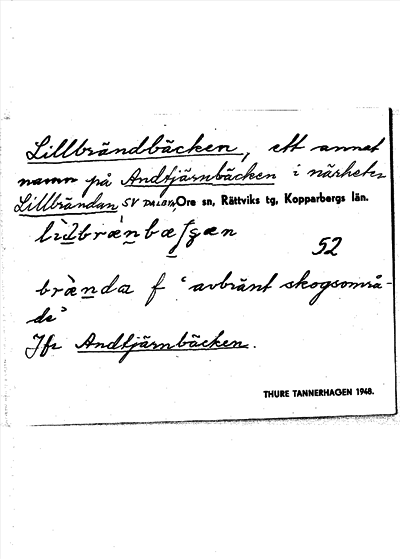 Lillbrändbäcken, ett annat
namn på Andtjärnbäcken i närheten
Lillbrändan SV DALBYN, Ore sn, Rättviks tg, Kopparbergs län.
52
bræ̀nda f "avbränt skogsområ-
de"
Jfr Andtjärnbäcken.
THURE TANNERHAGEN 1948.